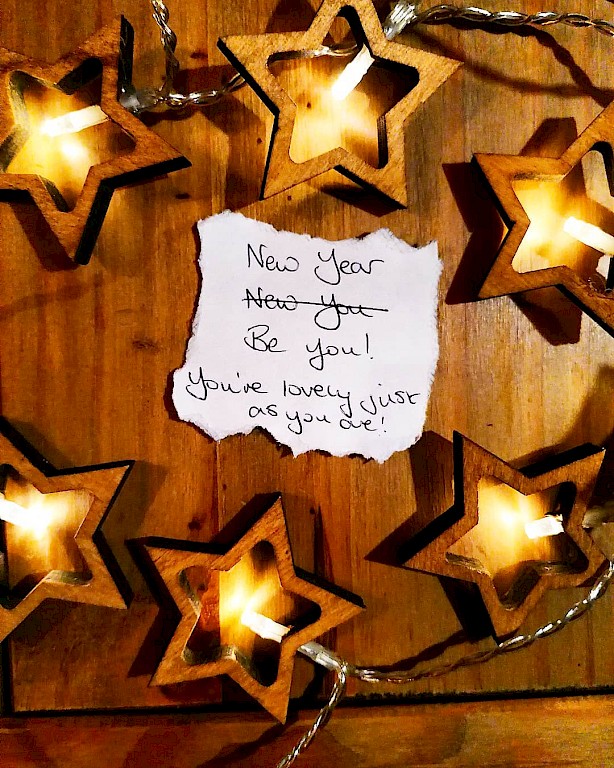 New Year
New You
Be you!
You're lovely just
as you are!